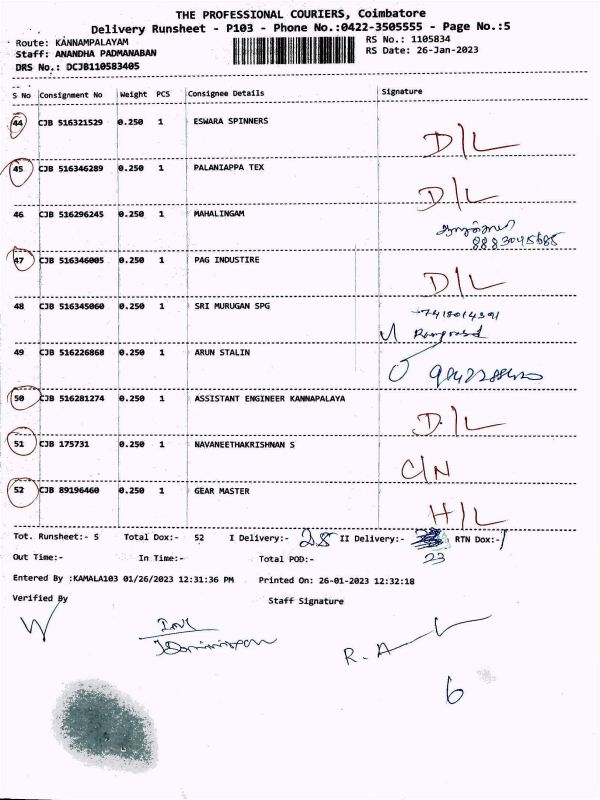 THE PROFESSIONAL COURIERS, Coimbatore
Delivery Runsheet - P103 - Phone No.:0422-3505555 - Page No.:5
Route: KANNAMPALAYAM
RS No.: 1105834
Staff: ANANDHA PADMANABAN
RS Date: 26-Jan-2023
DRS No.: DCJB110583405
S No Consignment No Weight PCS Consignee Details Signature
44 CJB 516321529 0.250 1 ESWARA SPINNERS
D/L
45 CJB 516346289 0.250 1 PALANIAPPA TEX
D/L
46 CJB 516296245 0.250 1 MAHALINGAM
8883045685
47 CJB 516346005 0.250 1 PAG INDUSTIRE
D/L
48 CJB 516345060 0.250 1 SRI MURUGAN SPG
7418014391
Ramprasad
49 CJB 516226868 0.250 1 ARUN STALIN
50 CJB 516281274 0.250 1 ASSISTANT ENGINEER KANNAPALAYA
D/L
51 CJB 175731 0.250 1 NAVANEETHAKRISHNAN S
C/N
52 CJB 89196460 0.250 1 GEAR MASTER
H/L
Tot. Runsheet:- 5 Total Dox:- 52 I Delivery:- 28 II Delivery:- RTN Dox:- 1
23
Out Time:- In Time:- Total POD:-
Entered By :KAMALA103 01/26/2023 12:31:36 PM Printed On: 26-01-2023 12:32:18
Verified By Staff Signature
R. A
6